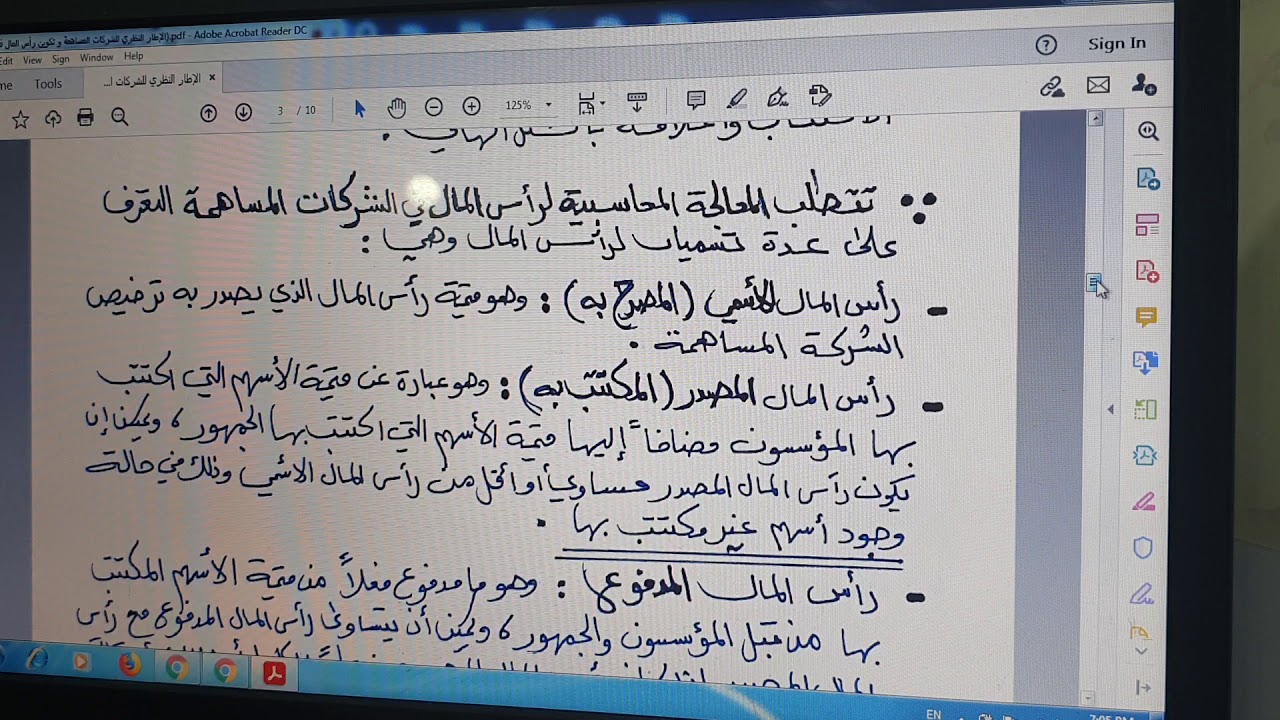 الإطار النظري للشركات المساهمة و تكوين رأس المال).pdf - Adobe Acrobat Reader DC
Edit View Sign Window Help
Sign In
Tools
الإطار النظري للشركات ا...
3 / 10
125%
تتطلب المعالجة المحاسبية لرأس المال في الشركات المساهمة التعرف
على عدة تسميات لرأس المال وهي :
- رأس المال الأسمي (المصرح به) : وهو قيمة رأس المال الذي يصدر به ترخيص
الشركة المساهمة .
- رأس المال المصدر (المكتتب به) : وهو عبارة عن قيمة الأسهم التي اكتتب
بها المؤسسون مضافاً إليها قيمة الأسهم التي اكتتب بها الجمهور ، ويمكن إن
يكون رأس المال المصدر مساوي أو أقل من رأس المال الاسمي وذلك في حالة
وجود أسهم غير مكتتب بها .
- رأس المال المدفوع : وهو ما مدفوع فعلاً من قيمة الأسهم المكتتب
بها من قبل المؤسسون والجمهور ، ويمكن أن يتساوى رأس المال المدفوع مع رأس
EN
7:05 PM